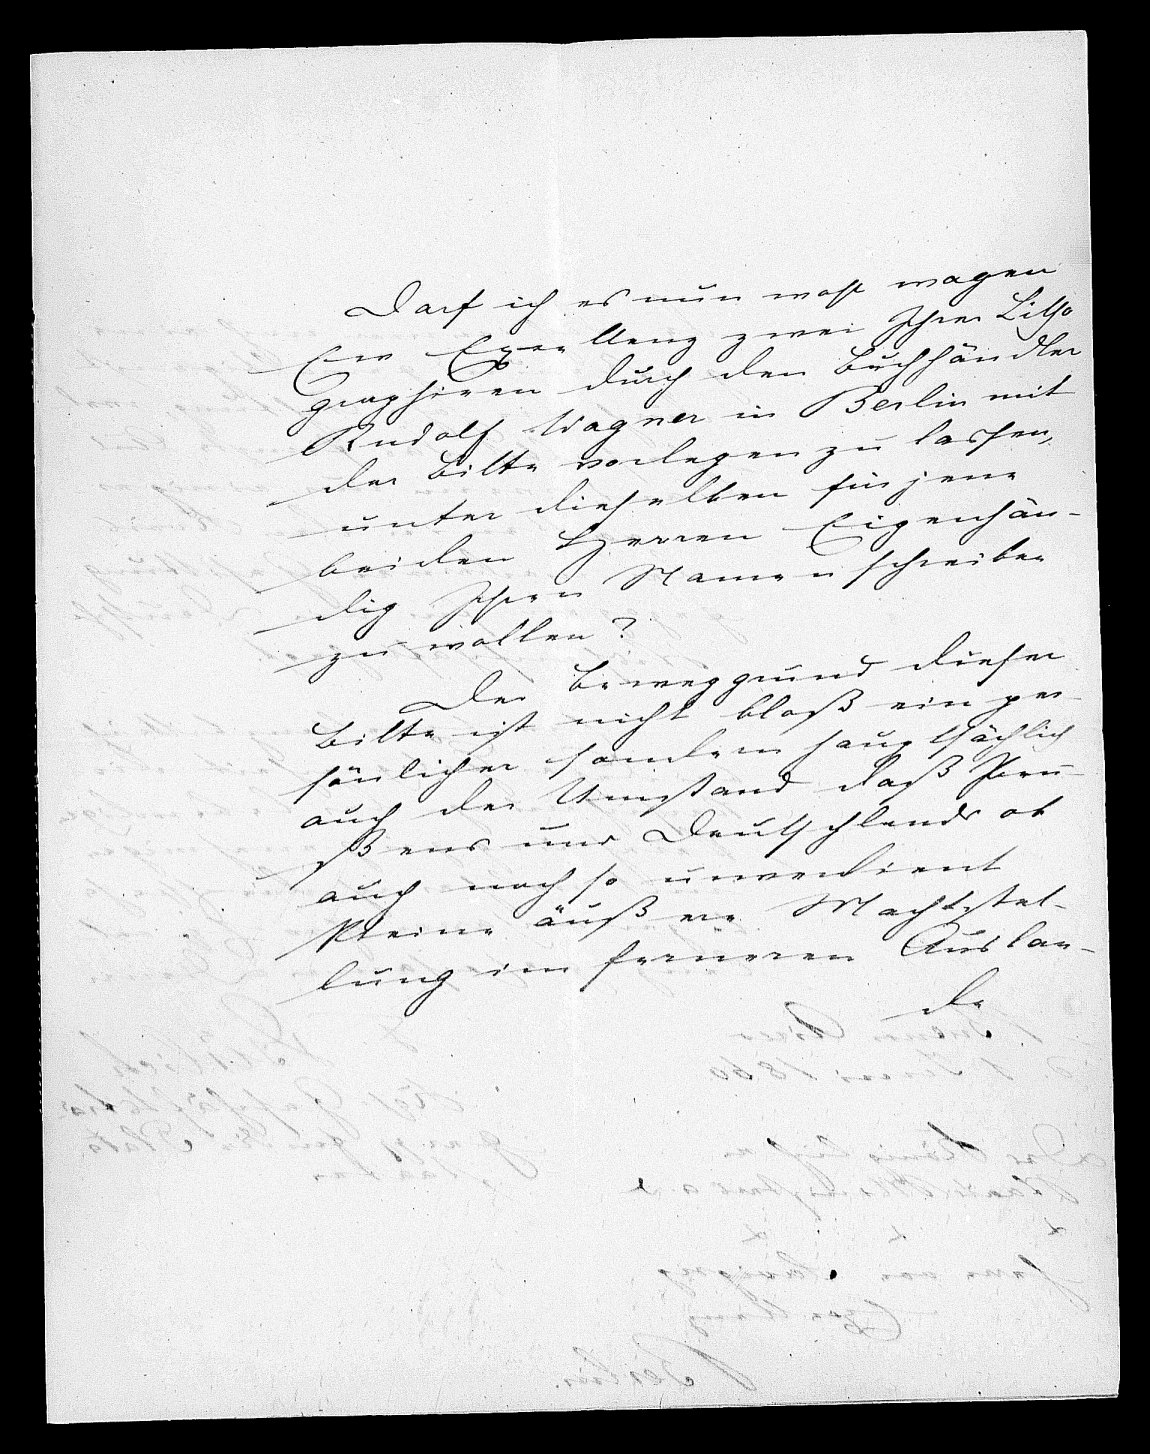 Darf ich es nun wohl wagen
Ew Excellenz zwei Ihrer Litho
graphieen durch den Buchhändler
Rudolf Wagner in Berlin mit
der Bitte vorlegen zu lassen,
unter dieselben für jene
beiden Herren Eigenhän-
dig Ihren Namen schreiben
zu wollen?
Der Beweggrund dieser
Bitte ist nicht bloß ein per-
sönlicher sondern hauptsächlich
auch der Umstand daß Preu-
ßens und Deutschlands ob
auch noch so unverdient
kleine äußere Machtstel-
lung im ferneren Auslan-
de